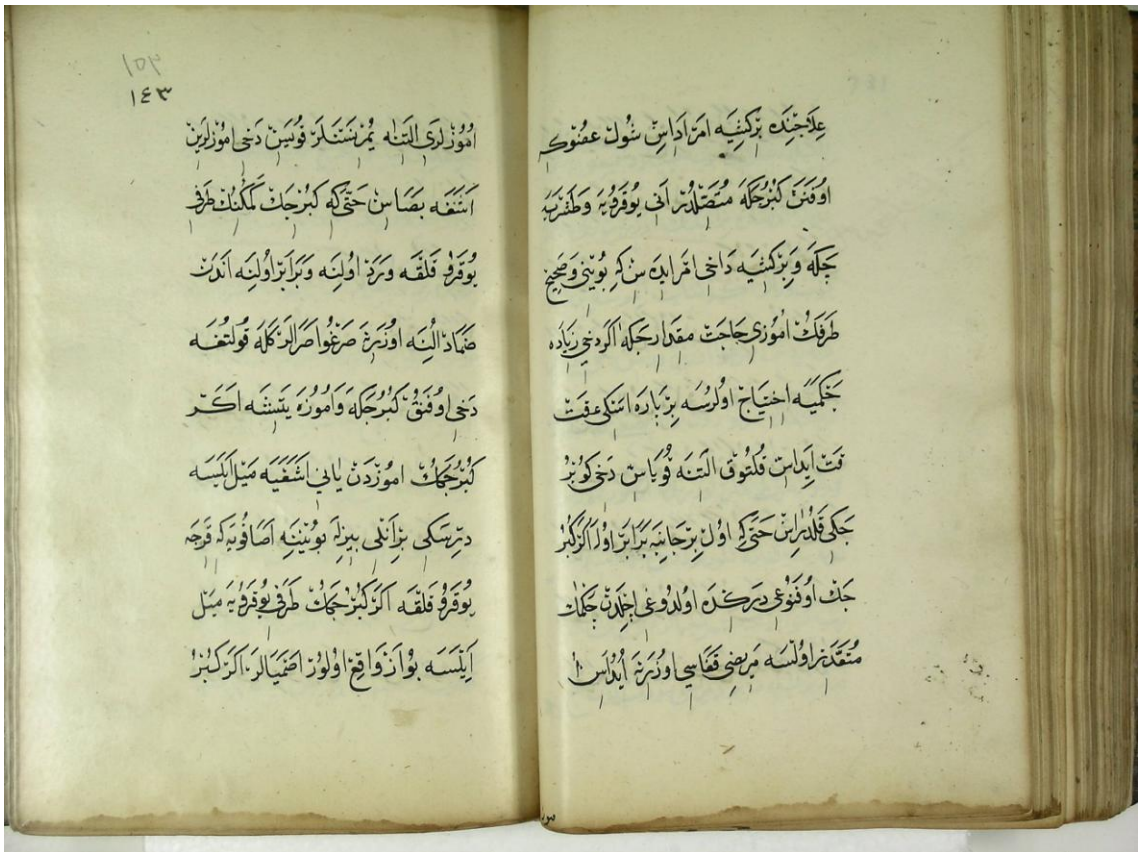 علاجنده بر كشیه امر اداسن شول عضوك
اوفنن كبرجكه متصلدر انی یوقرویه وطغریه
چكه وبر كشیه داخی امر ایده سن كه بوینی وصحیح
طرفك اموزی حاجت مقدارجكه اكر دخی زیاده
چكمیه احتیاج اولرسه بر پاره اسكی قت
قت ایداسن قلتوق التنه قویاسن دخی كوبر
جكی قلدراسن حتی كه اول بر جانبه برابر اولا اكر كبر
جك اوفنوغی دركده اولدوغی اجلدن چكمك
متقدر اولسه مریضی قفاسی اوزرنه ایداسن
١٥٩
١٤٣
اموزلری التنه یمر بستلر قوسن دخی اموزلرین
اشغه بصاسن حتی كه كبرجك كمكنك طرفی
یوقرو قلقه ورد اولنه وبرابر اولنه اندن
ضماد النه اوزرنه صرغو صرالر كله قولتغه
دخی اوفنق كبرجكه واموزه یتشه اكر
كبرجك اموزدن یانی اشغیه میل ایلسه
درسكی بر انلی بیزله بوینینه اصاقویه كه قرجه
یوقرو قلقه اكر كبرجك طرفی یوقرویه میل
ایلسه بو از واقع اولور اصمیالر اكر كبر